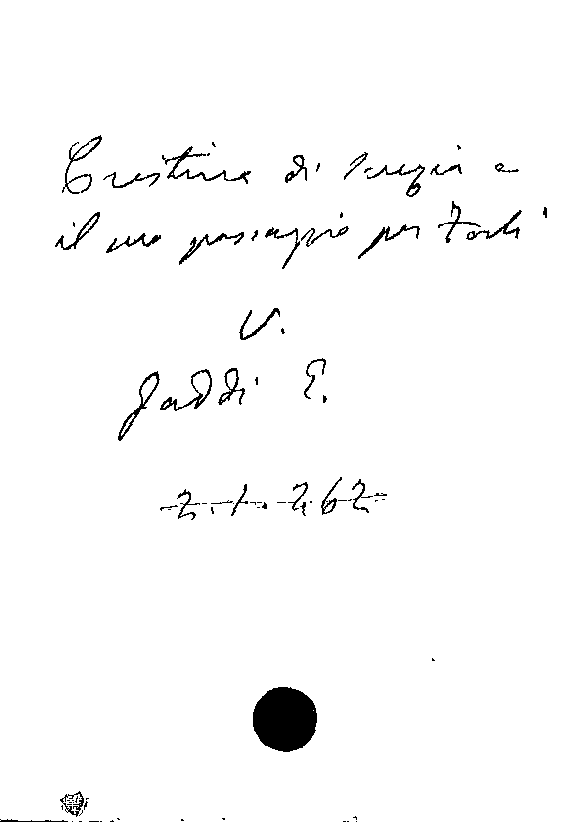 Cristina di Svezia e
il suo passaggio per Forlì
V.
Gaddi E.
2.1.262